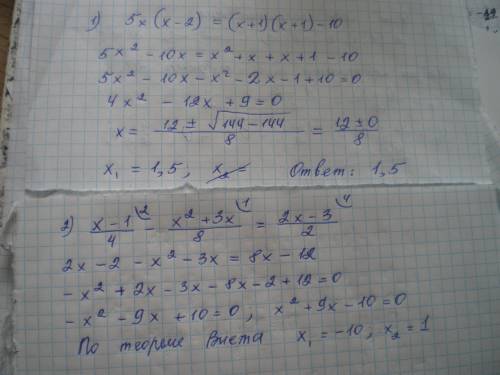 1) 5x(x-2) = (x+1)(x+1)-10
5x² - 10x = x² + x + x + 1 - 10
5x² - 10x - x² - 2x - 1 + 10 = 0
4x² - 12x + 9 = 0
x = (12 ± √(144-144))/8 = (12 ± 0)/8
x₁ = 1,5; Ответ: 1,5
2) (x-1)/4 - (x²+3x)/8 = (2x-3)/2
2x - 2 - x² - 3x = 8x - 12
-x² + 2x - 3x - 8x - 2 + 12 = 0
-x² - 9x + 10 = 0, x² + 9x - 10 = 0
По теореме Виета x₁ = -10, x₂ = 1